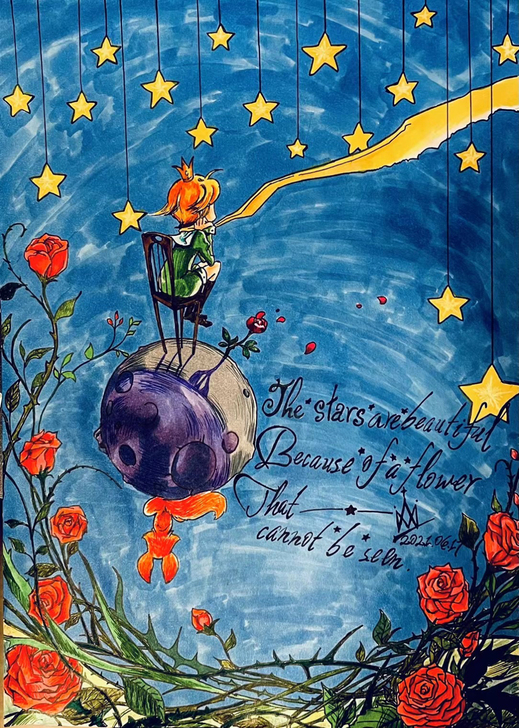 The stars are beautiful
Because of a flower
That
cannot be seen.
2021.06.17